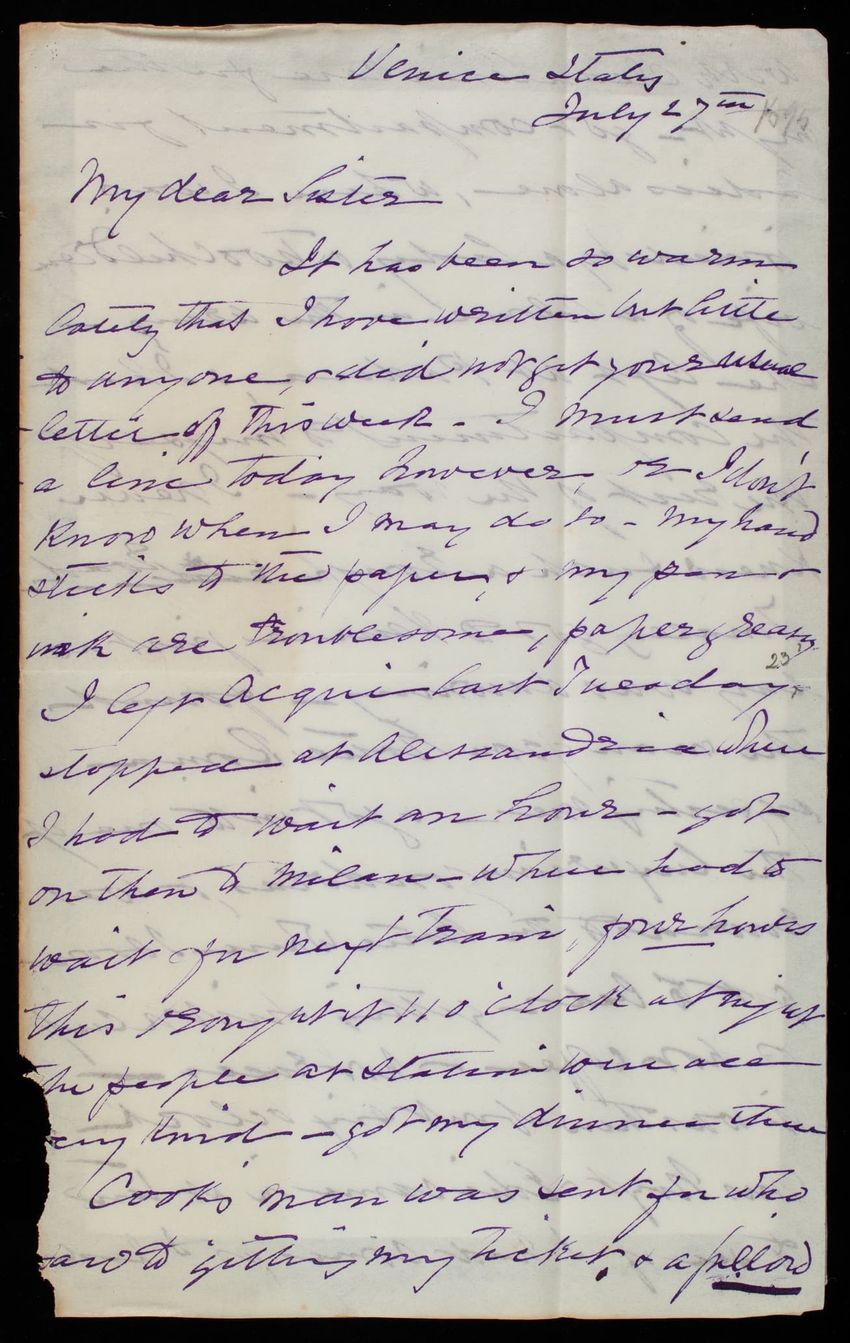 Venice Italy
July 27th 1895
My dear Sister
It has been so warm
lately that I have written but little
to anyone, & did not get your usual
letter off this week - I must send
a line today however, or I don't
know when I may do so - my hand
sticks to the paper, & my pen &
ink are troublesome, paper greasy
23
I left Acqui last Tuesday,
stopped at Alessandria where
I had to wait an hour - got
on then to Milan - where had to
wait for next train, four hours
this brought it 11 o'clock at night
the people at station were all
very kind - got my dinner there
Cook's man was sent for who
saw to getting my ticket, & a pillow